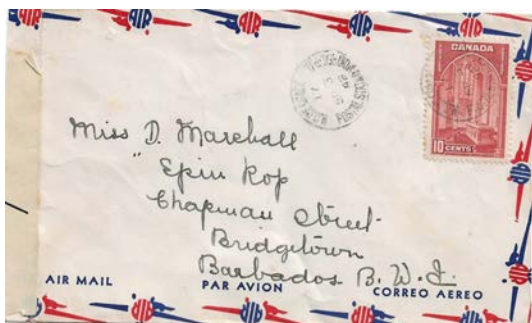 CANADA
10 CENTS
Miss D. Marshall
"Spin Kop
Chapman Street
Bridgetown
Barbados B. W. I.
AIR MAIL
PAR AVION
CORREO AEREO